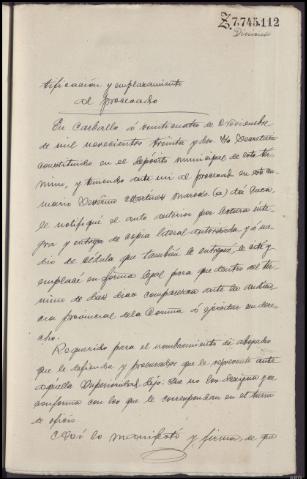 7.745.112
tificación y emplazamiento
al procesado
En Carballo á veinticuatro de Noviembre
de mil novecientos treinta y dos Yo Secretario
constituido en el depósito municipal de este tér
mino, y teniendo ante mi al procesado en este su
mario Martínez (a)
le notifiqué el auto anterior por lectura ínte
gra y entrega de copia literal autorizada y á me
dio de cédula que también le entregué, le cité y
emplacé en forma legal para que dentro del tér
mino de diez días comparezca ante la Audien
cia provincial de la Coruña á ejercitar su dere
cho.
Requerido para el nombramiento de abogado
que le defienda y procurador que le represente ante
aquella Superioridad dijo: que no los designa y se
conforma con los que le correspondan en el turno
de oficio
Así lo manifestó y firma de que